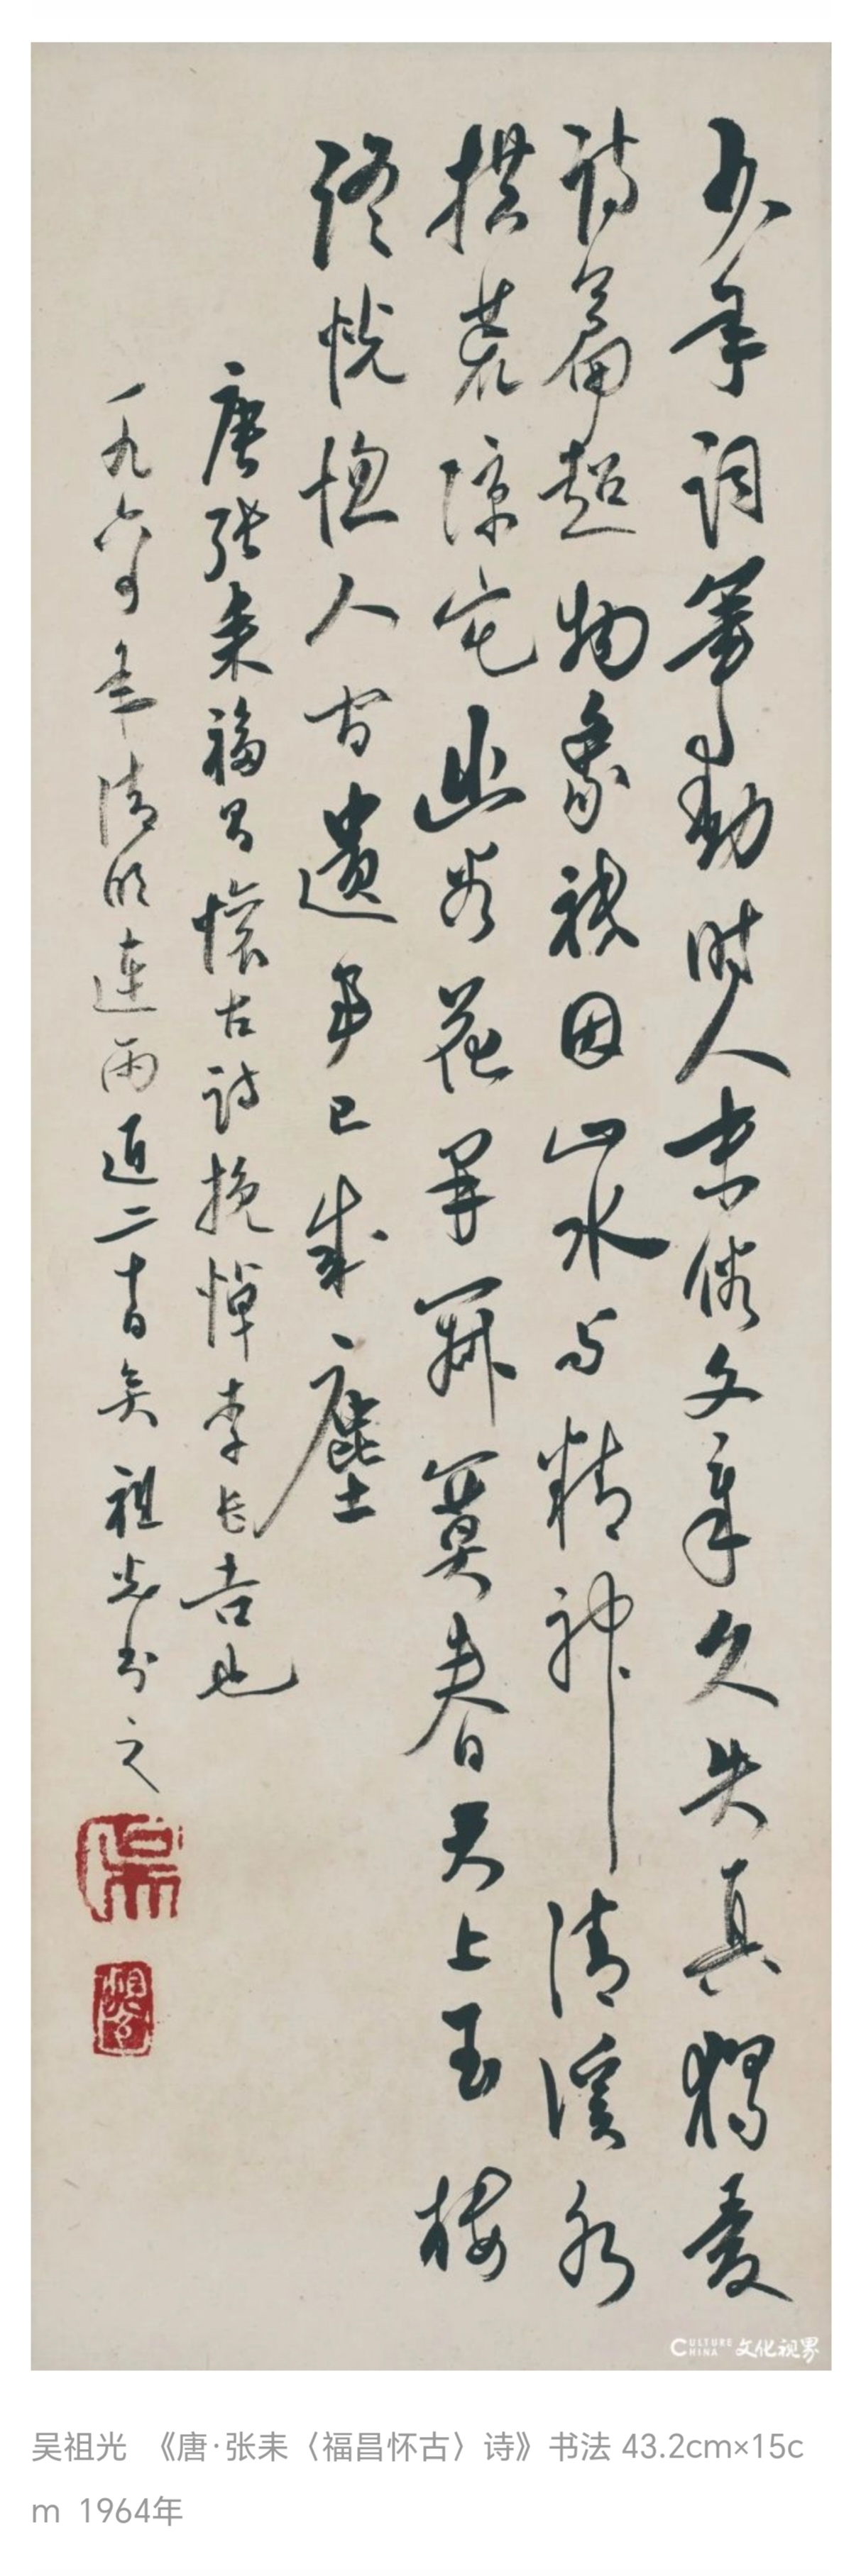 少年詞筆動時人末俗文章久失真獨愛
詩篇超物象祇因山水与精神清溪水
拱荒涼宅幽谷花開寂寞春天上玉樓
終恍惚人間遺事已成塵
唐張耒福昌懷古詩挽悼李長吉也
一九六四年清明連雨近二十日矣 祖光書之
CULTURE CHINA 文化视界
吴祖光 《唐·张耒〈福昌怀古〉诗》书法 43.2cm×15c
m 1964年